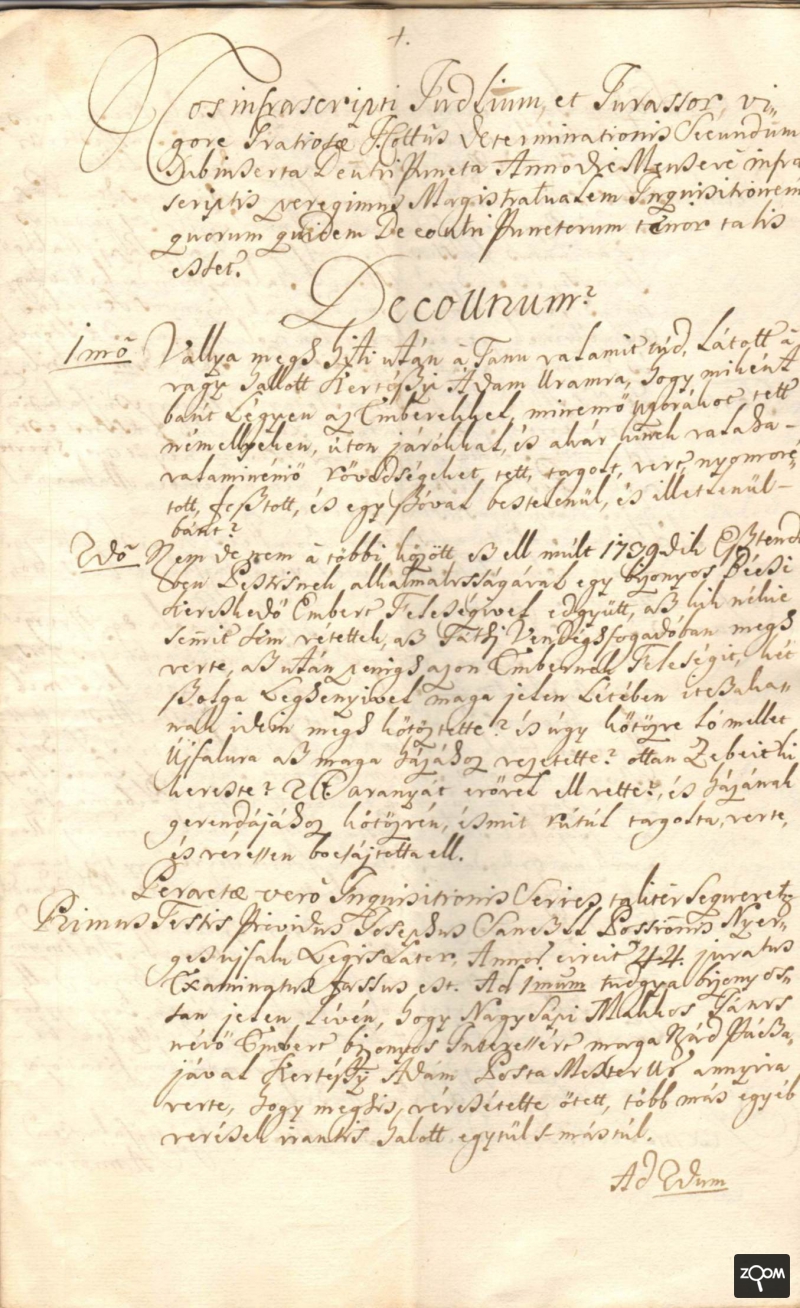 †.
Nos infrascripti Judlium, et Jurassor, vi„
gore Gratiosae Cottus Determinationis Secundum
Subinserta Deutri Puncta Anno die Mense infra
scriptis peregimus Magistratualem Inquisitionem
quorum quidem De eoutri Punctorum tenor talis
esset.
De eoutrum?
1mo Vallya megh hiti után à Tanu valamit tud, Látott à,
vagy hallott Kertészi Ádam Uramra, hogy miként
bánt Légyen az Emberekkel, minemö tett
némellyeken, úton járókkal, és akár kinek valaha-
valaminémö rövidségeket tett, tagolt, vert, nyomorí„
tott, fosztott, és egy szóval bestelenül, és illetlenül-
bánt?
2do Nem de nem à többi között, ell múlt 1739dik Esztend
ben Pestisnek alkalmatosságával egy bizonyos Pécsi
Kereskedö Embert Feleségivel edgyütt, a kik nékie
semit sem vétettek, a Táthi Vendégfogadóban megh
verte, az után penigh azon Embernek Feleségit, két
szolga Legényivel maga jelen Létében
nak idein megh kötöztette? és úgy kötözve Ló mellet
Újfalura az maga házához vezetette? ottan Zebeit ki
kereste? Aranyát erövel ell vette?, és házának
gerendájához kötözvén, ésmit rútúl tagolta, verte,
és véressen bocsájtotta ell.
Peractae vero Inquisitionis Series taliter sequeret
Primus Testis Providus Josephus Possonis Nyer„
gesujfalu Legislator, Annor circit 44. juratus
Examinatus fassus est. Ad 1mum tudgya bizonyos„
san jelen lévén, hogy Nagy Sápi Miklos János
névö Embert bizonyos maga Nád Pálcza„
jával Kertészy Ádám Posta Mester Ur annyira
verte, hogy meghis véresétette ötett, több más egyéb
veréseki iránt is halott egytül s mástúl.
Ad 2dum
ZOOM